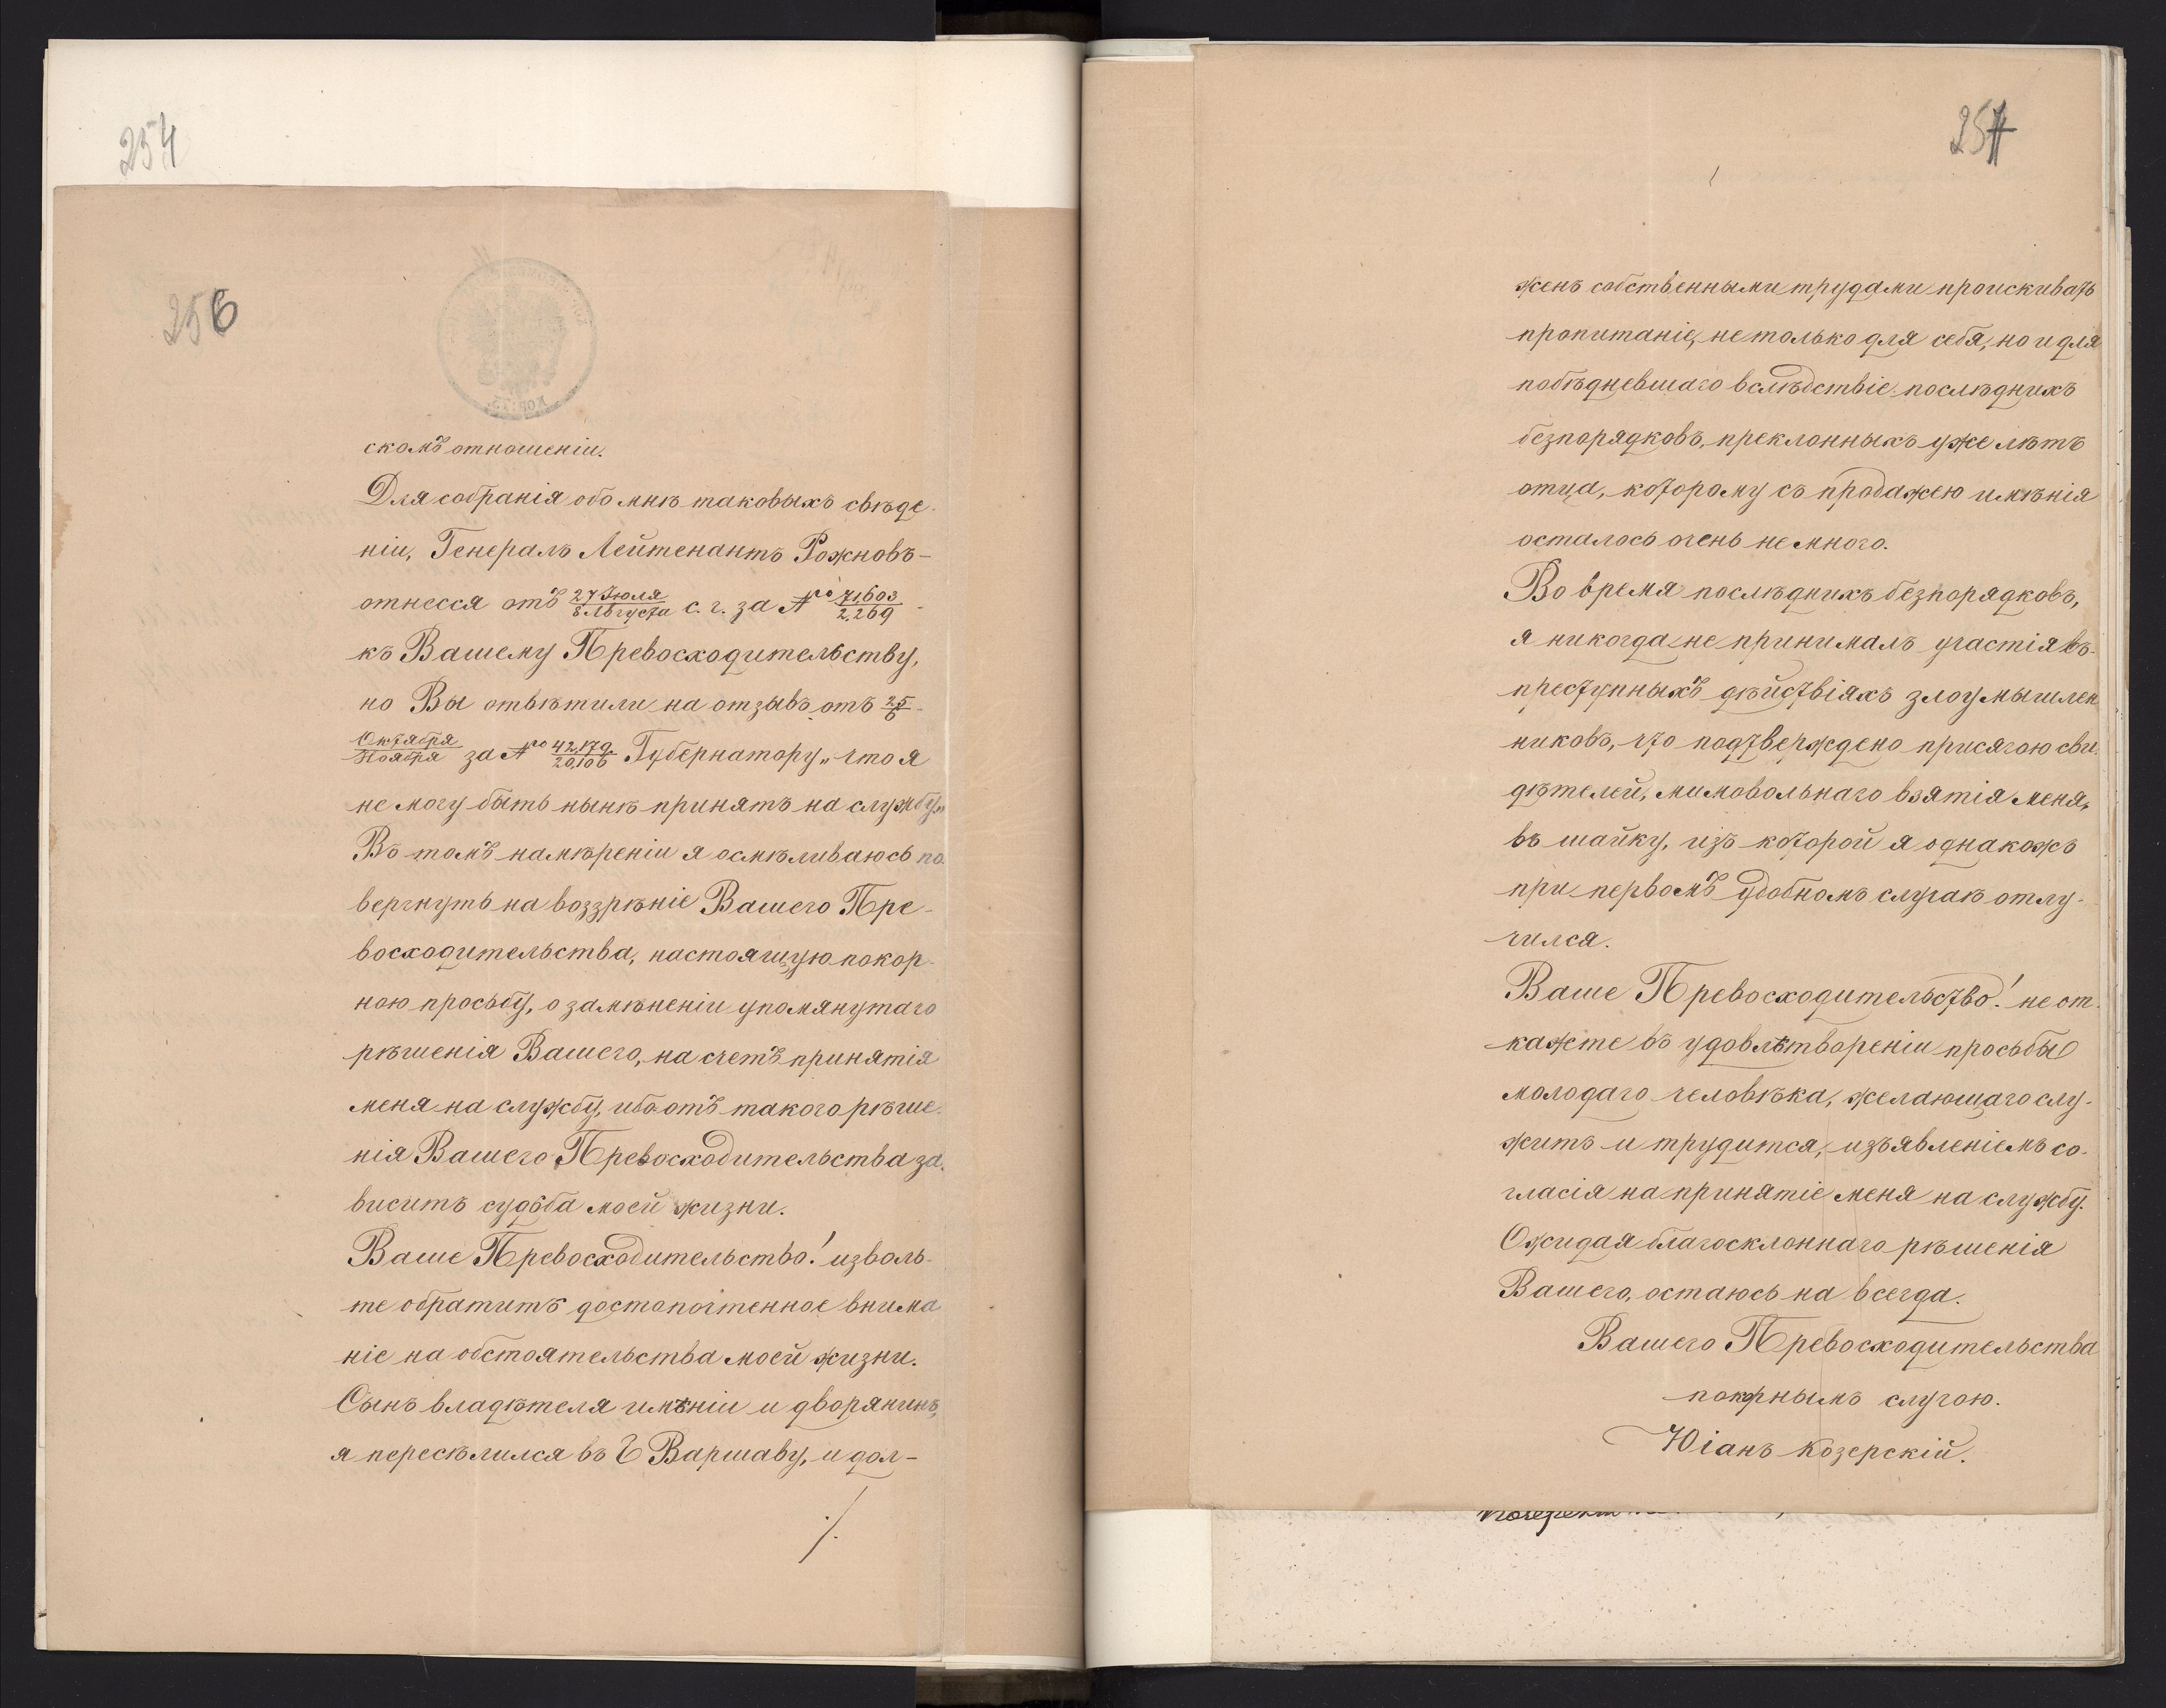 254
256
скомъ отношеніи.
Для собранія обо мнѣ таковыхъ свѣде-
ніи, Генералъ Лейтенантъ Рожновъ-
отнесся отъ 27 Іюля / 8 Августа с. г. за №ro 71603 / 2,269 -
къ Вашему Превосходительству,
но Вы отвѣтили на отзывъ отъ 25 / 6 -
Октября / Ноября за №ro 42,179 / 20,106 Губернатору „ что я
не могу быть нынѣ принятъ на службу„
Въ томъ намѣреніи я осмѣливаюсь по-
вергнуть на воззрѣніе Вашего Пре-
восходительства, настоящую покор-
ною просьбу, о замѣненіи упомянутаго
рѣшенія Вашего, на счетъ принятія
меня на службу, ибо отъ такого рѣше-
нія Вашего Превосходительства за-
виситъ судьба моей жизни.
Ваше Превосходительство! изволь-
те обратитъ достопочтенное внима
ніе на обстоятельства моей жизни.
Сынъ владѣтеля имѣніи и дворянинъ,
я пересѣлился въ Г Варшаву, и дол-
./.
257
женъ собственными трудами проискивать
пропитаніе, не только для себя, но и для
побѣдневшаго вслѣдствіе послѣднихъ
безпорядковъ, преклонныхъ уже лѣтъ
отца, которому съ продажею имѣнія
осталось очень немного.
Во время послѣднихъ безпорядковъ,
я никогда не принималъ участія въ-
преступныхъ дѣйствіяхъ злоумышлен
никовъ, что подтверждено присягою сви-
дѣтелей, мимовольнаго взятія меня,
въ шайку, изъ которой я однакожъ
при первомъ удобномъ случаѣ отлу-
чился.
Ваше Превосходительство! не от-
кажете въ удовлѣтвореніи просьбы
молодаго человѣка, желающаго слу-
житъ и трудится, изъявленіемъ со-
гласія на принятіе меня на службу.
Ожидая благосклоннаго рѣшенія
Вашего, остаюсь на всегда.
Вашего Превосходительства
покрнымъ слугою.
Юіанъ Козерскій.